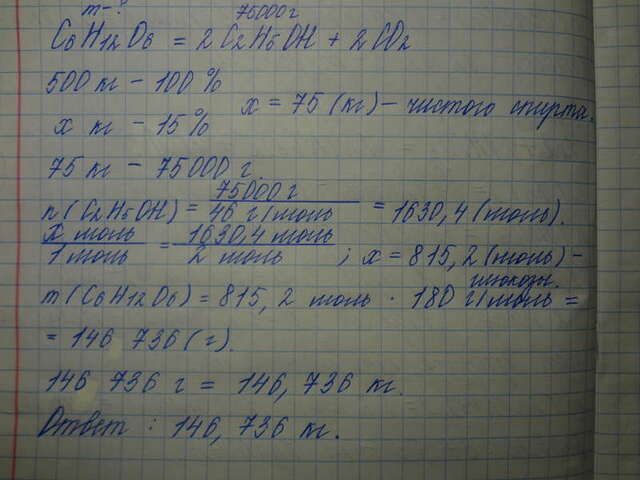 m-?
75000 г
C6H12O6 = 2C2H5OH + 2CO2
500 кг - 100 %
x кг - 15 %
x = 75 (кг) - чистого спирта.
75 кг - 75000 г.
n(C2H5OH) = 75000 г / 46 г/моль = 1630,4 (моль).
x моль / 1 моль = 1630,4 моль / 2 моль ; x = 815,2 (моль) - глюкозы.
m(C6H12O6) = 815,2 моль · 180 г/моль =
= 146 736 (г).
146 736 г = 146,736 кг.
Ответ : 146,736 кг.